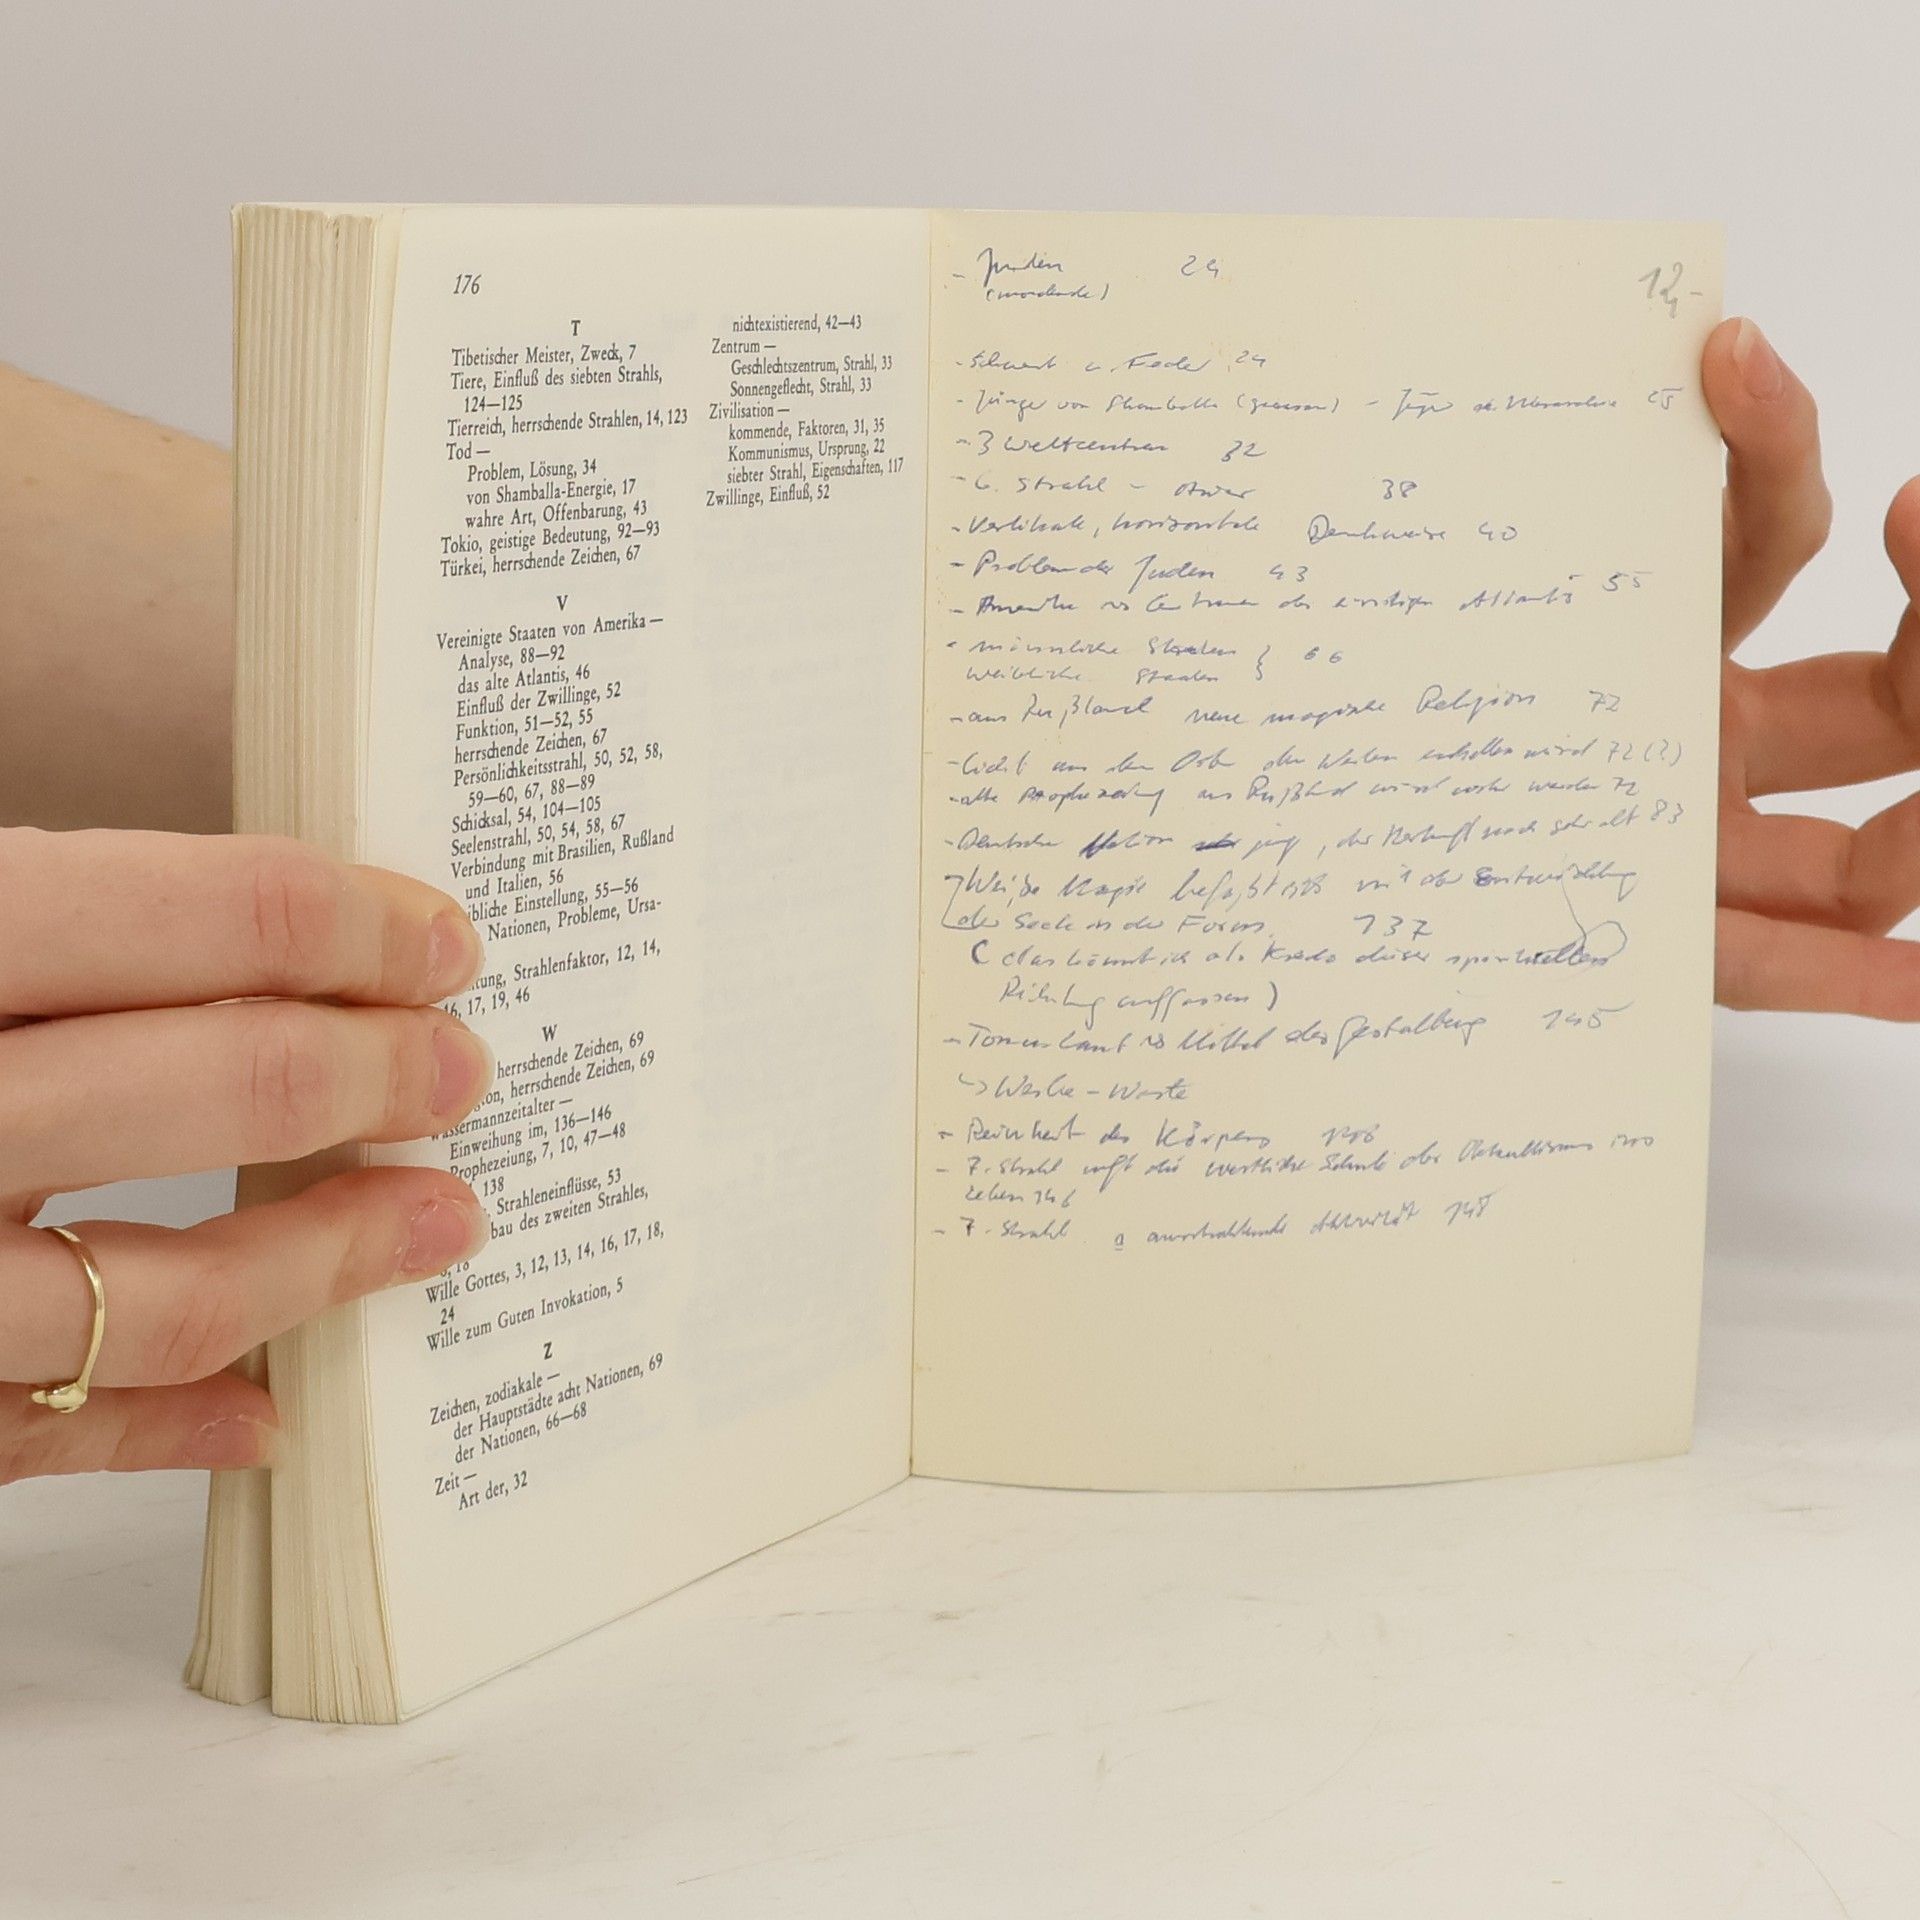 176
T
Tibetischer Meister, Zweck, 7
Tiere, Einfluß des siebten Strahls,
124—125
Tierreich, herrschende Strahlen, 14, 123
Tod —
Problem, Lösung, 34
von Shamballa-Energie, 17
wahre Art, Offenbarung, 43
Tokio, geistige Bedeutung, 92—93
Türkei, herrschende Zeichen, 67
V
Vereinigte Staaten von Amerika —
Analyse, 88—92
das alte Atlantis, 46
Einfluß der Zwillinge, 52
Funktion, 51—52, 55
herrschende Zeichen, 67
Persönlichkeitsstrahl, 50, 52, 58,
59—60, 67, 88—89
Schicksal, 54, 104—105
Seelenstrahl, 50, 54, 58, 67
Verbindung mit Brasilien, Rußland
und Italien, 56
ibliche Einstellung, 55—56
Nationen, Probleme, Ursa-
tung, Strahlenfaktor, 12, 14,
16, 17, 19, 46
W
herrschende Zeichen, 69
on, herrschende Zeichen, 69
assermannzeitalter —
Einweihung im, 136—146
Prophezeiung, 7, 10, 47—48
138
Strahleneinflüsse, 53
bau des zweiten Strahles,
18
Wille Gottes, 3, 12, 13, 14, 16, 17, 18,
24
Wille zum Guten Invokation, 5
Z
Zeichen, zodiakale —
der Hauptstädte acht Nationen, 69
der Nationen, 66—68
Zeit —
Art der, 32
nichtexistierend, 42—43
Zentrum —
Geschlechtszentrum, Strahl, 33
Sonnengeflecht, Strahl, 33
Zivilisation —
kommende, Faktoren, 31, 35
Kommunismus, Ursprung, 22
siebter Strahl, Eigenschaften, 117
Zwillinge, Einfluß, 52
12,-
- Juden 24
- Schwert u. Feder 24
- Jünger von Shamballa - 25
- 3 Weltzentren 32
- 6. Strahl - 38
- Vertikale, horizontale Denkweise 40
- Problem der Juden 43
- Amerika Zentrum des einstigen Atlantis 55
- männliche Staaten } 66
weibliche Staaten
- aus Rußland neue magische Religion 72
- Licht aus dem Osten den Westen erhellen wird 72 (?)
- alte Prophezeiung aus Rußland wird wahr werden 72
- Deutsche Nation jung, der Herkunft nach sehr alt 83
Weiße Magie befaßt sich mit der Entwicklung
der Seele in der Form. 137
(das könnte ich als Kredo dieser spirituellen
Richtung auffassen)
- Ton u. Laut Mittel der Gestaltung 145
↳ Werke - Worte
- Reinheit des Körpers 146
- 7. Strahl ruft die westliche Schule des Okkultismus ins
Leben 146
- 7. Strahl ausstrahlende Aktivität 148